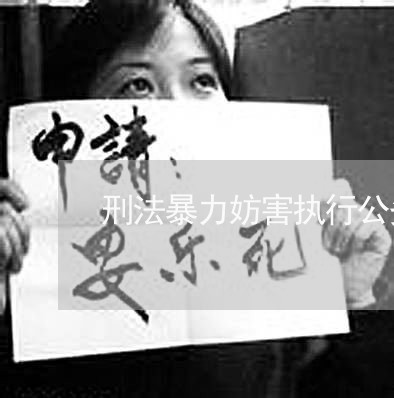 申請：
刑法暴力妨害执行公
安乐死